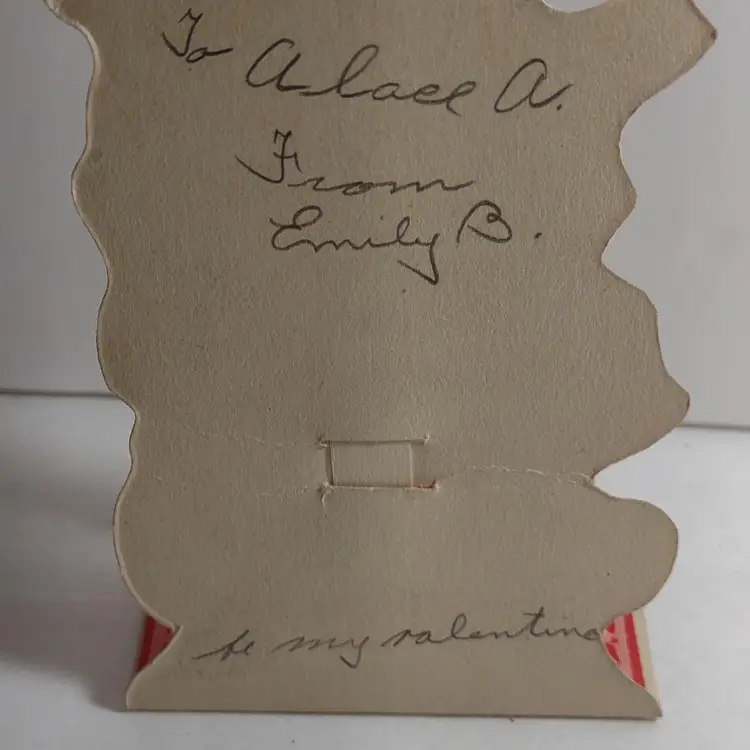 To Alace A.
From
Emily B.
be my valentine